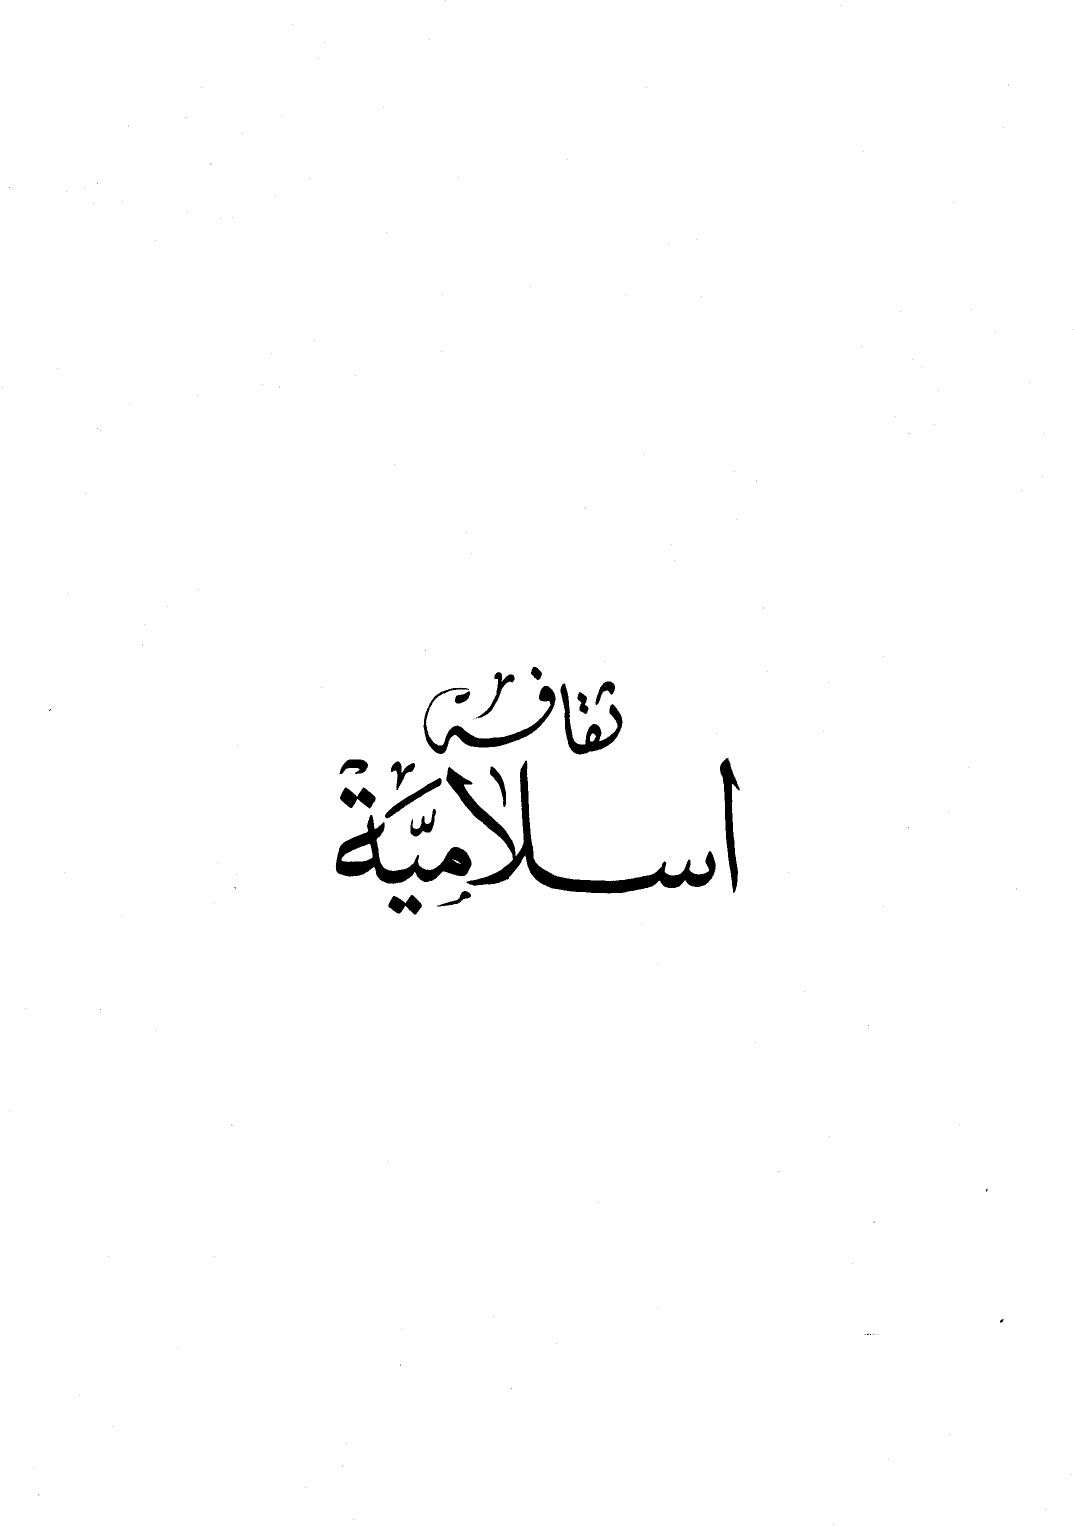 ثقافة
اسلاميّة